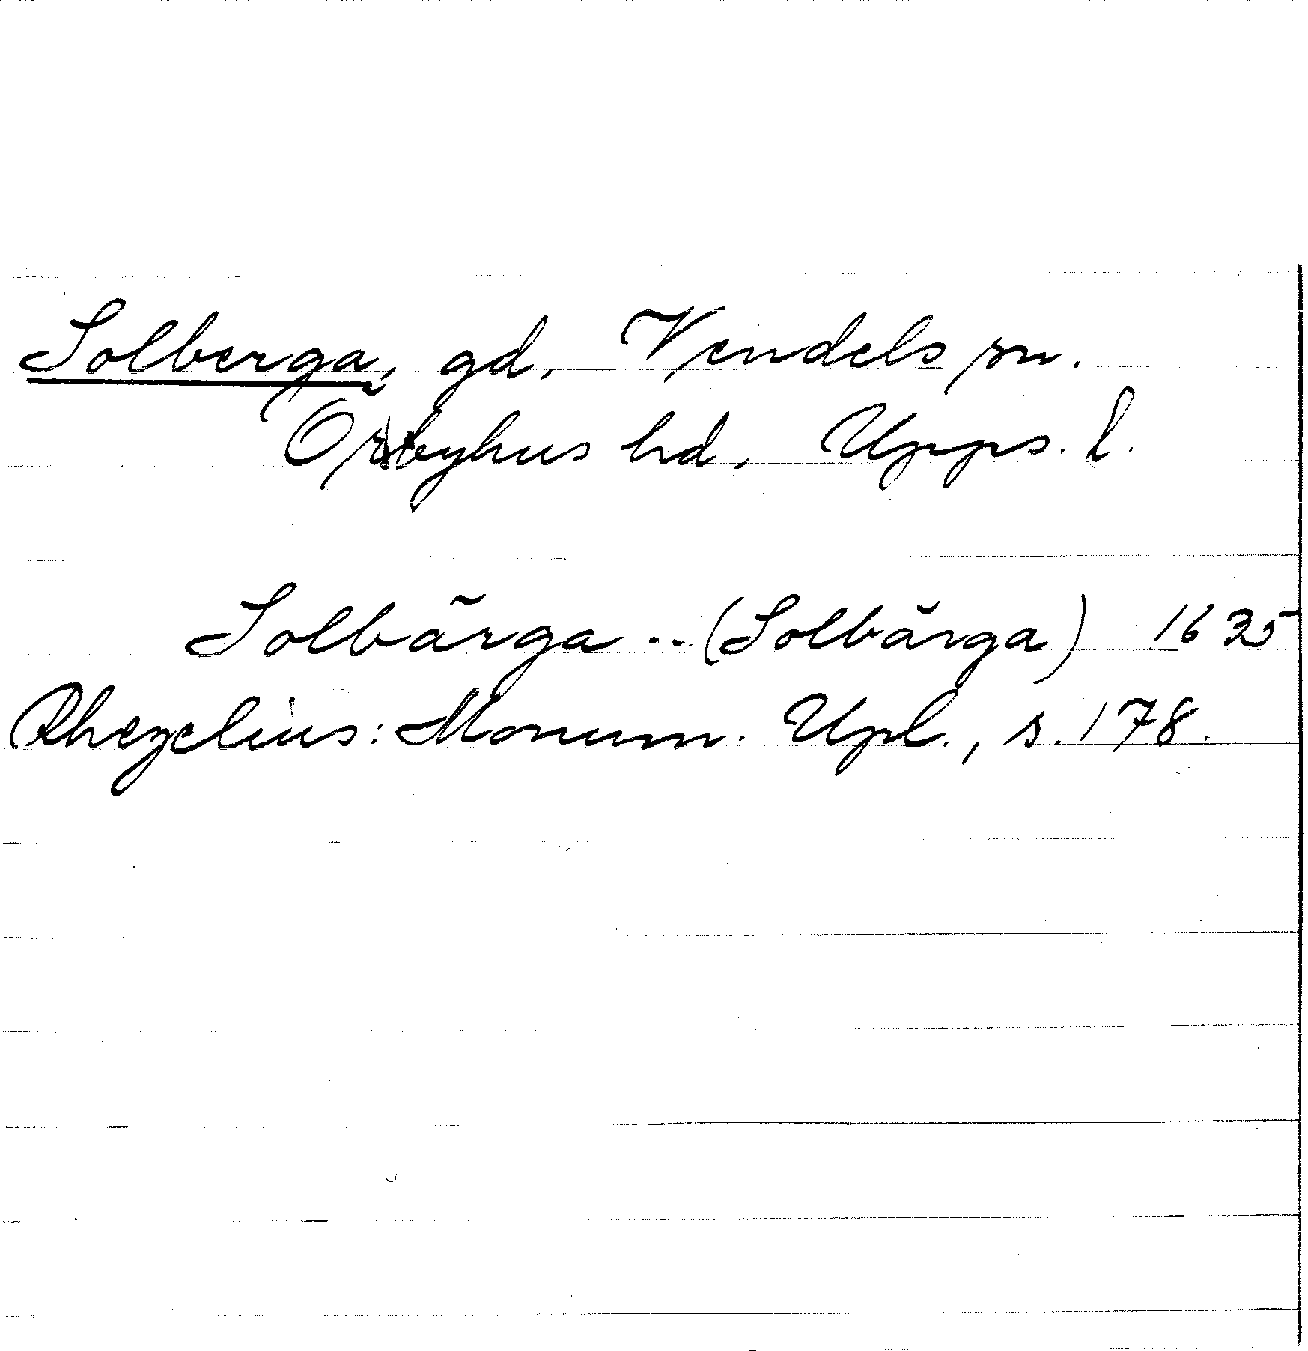 Solberga, gd, Vendels sn.
Örbyhus hd, Upps. l.
Solbärga -- (Solbärga) 1635
Rhezelius: Monum. Upl., s. 178.